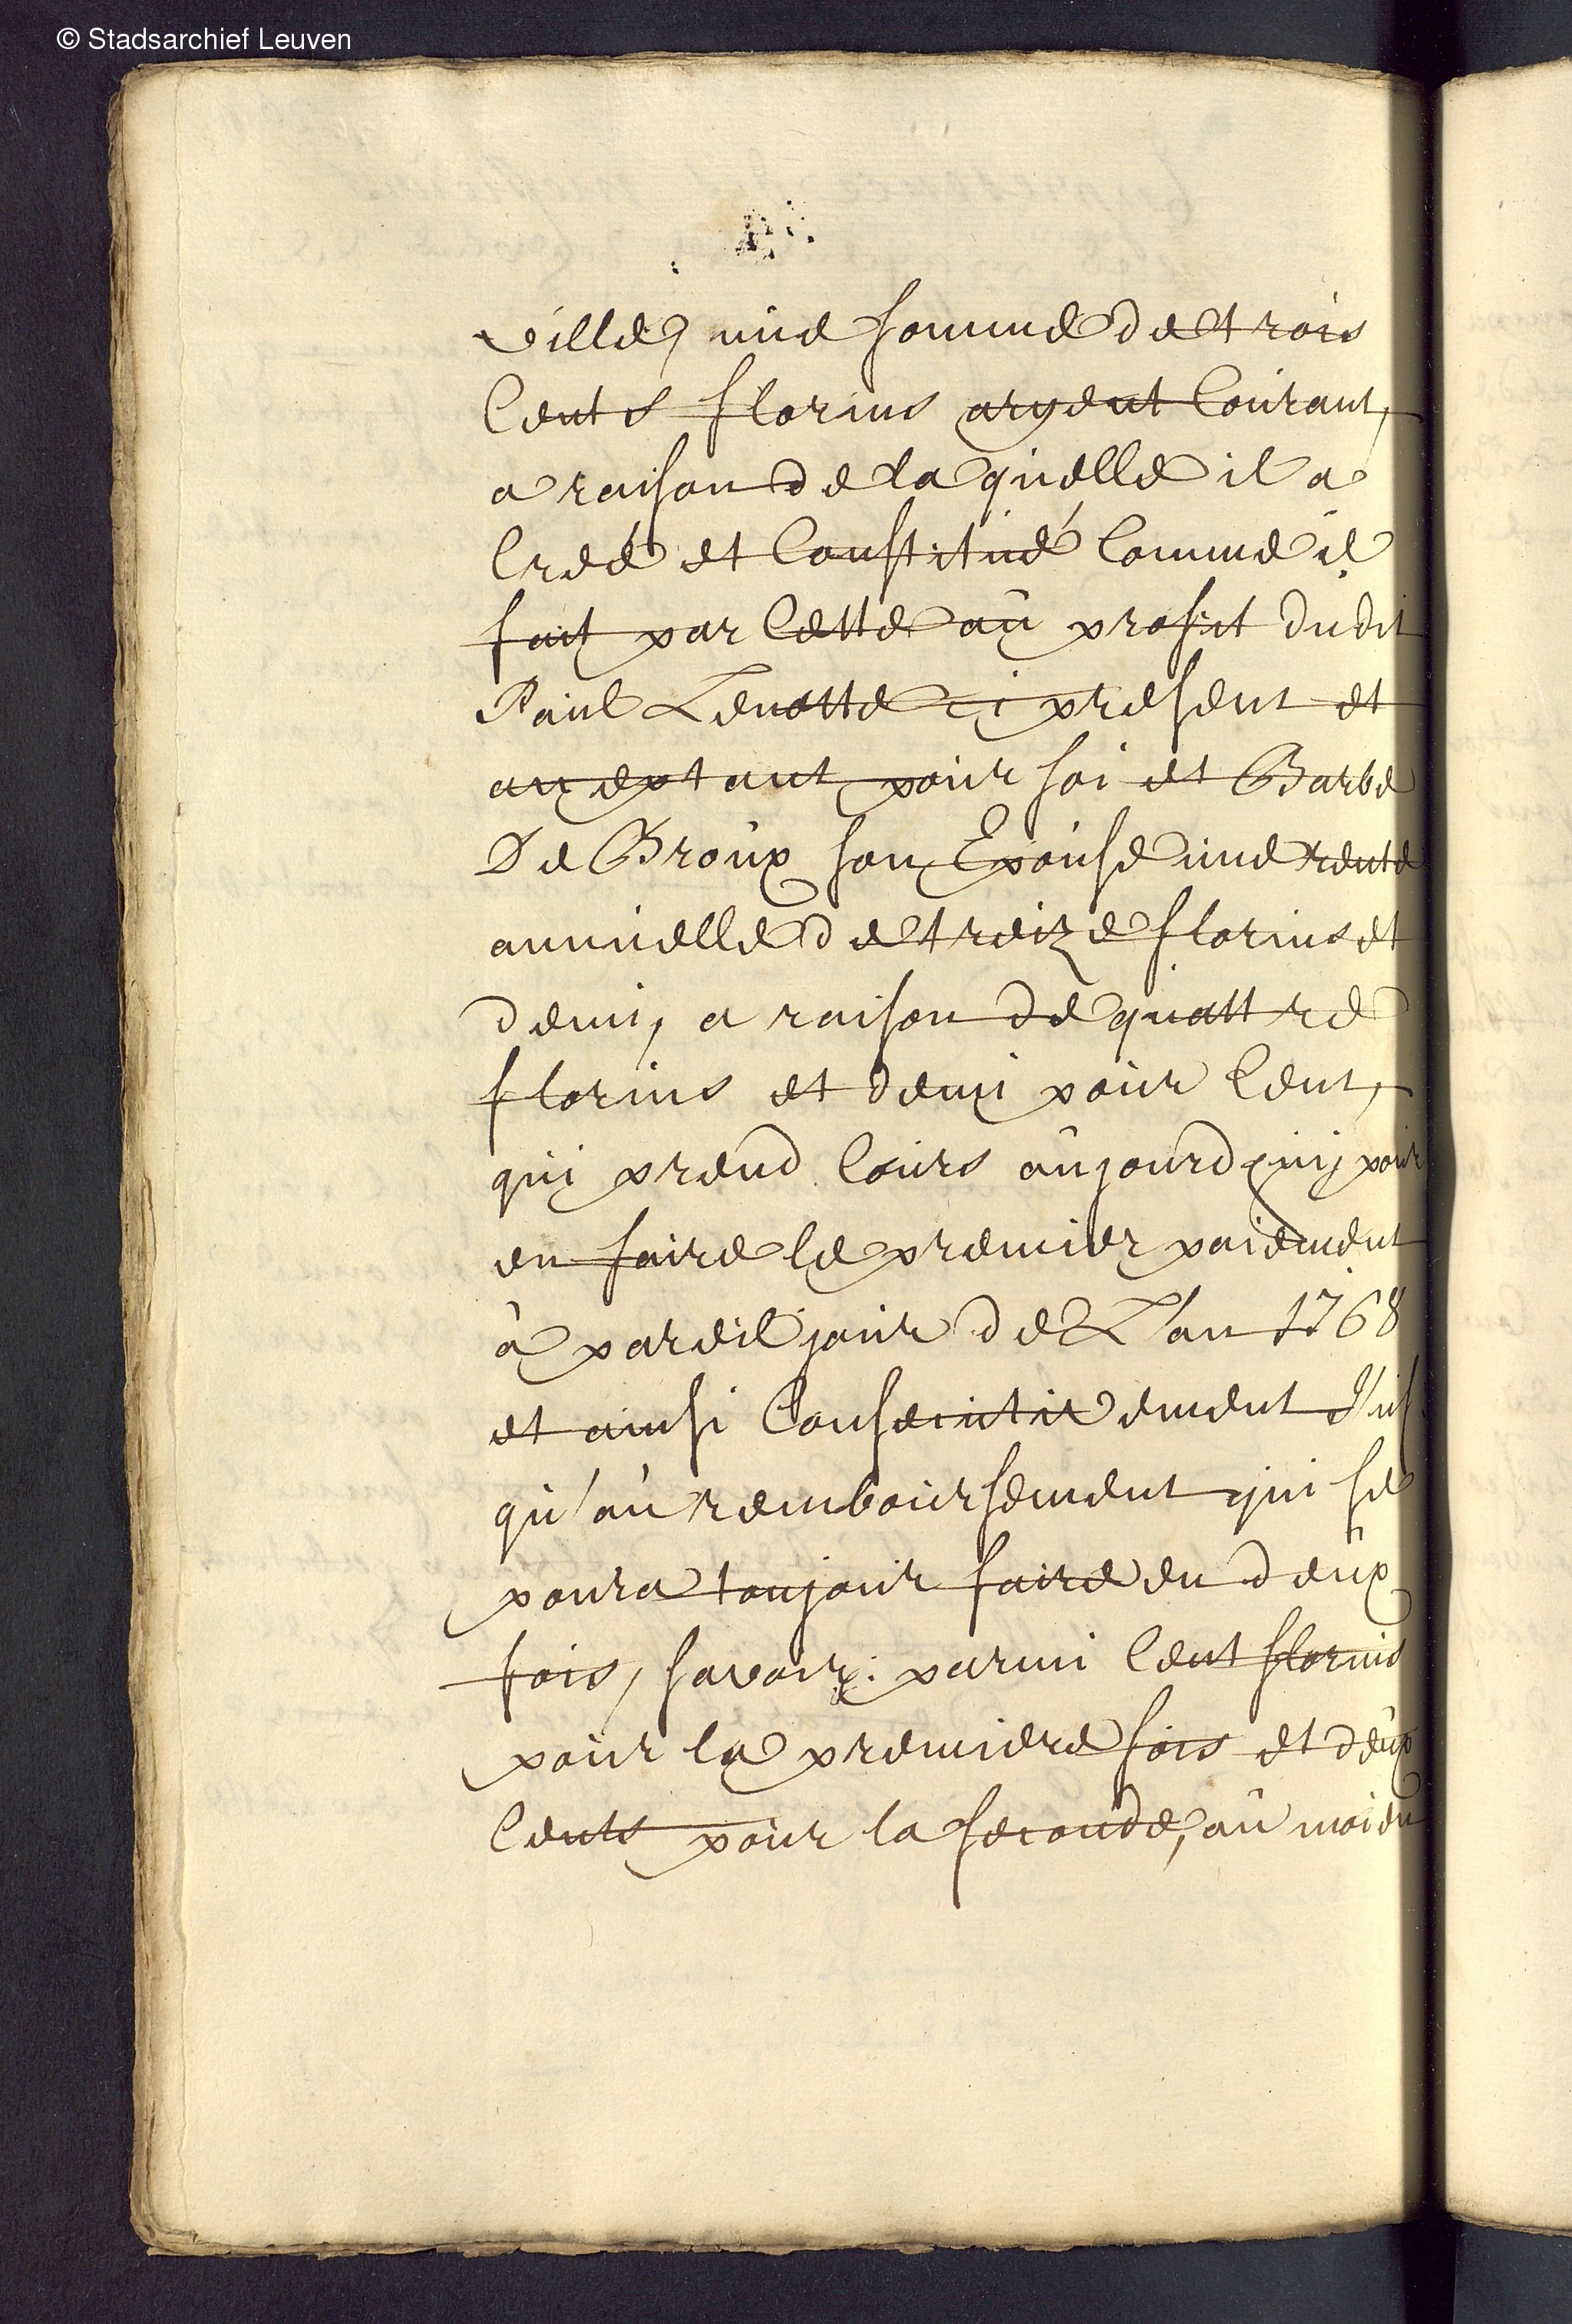 © Stadsarchief Leuven
ville, une somme de trois
Cents florins argent Courant,
a raison de la quelle il a
Créé et Constitué Comme il
fait par Cette au profit dudit
Paul Lenotte ci present et
acceptant pour soi et Barbe
De Broux son Epouse une rente
annuelle de treize florins et
demi, a raison de quattre
florins et demi pour Cent,
qui prend Cours aujourdhuij pour
en faire le premier paiement
à pareil jour de L'an 1768
et ainsi Consecutivement Jus
qu'au remboursement qui se
poura toujour faire en deux
fois, savoir: parmi Cent florins
pour la premiere fois et deux
Cents pour la seconde, au moien